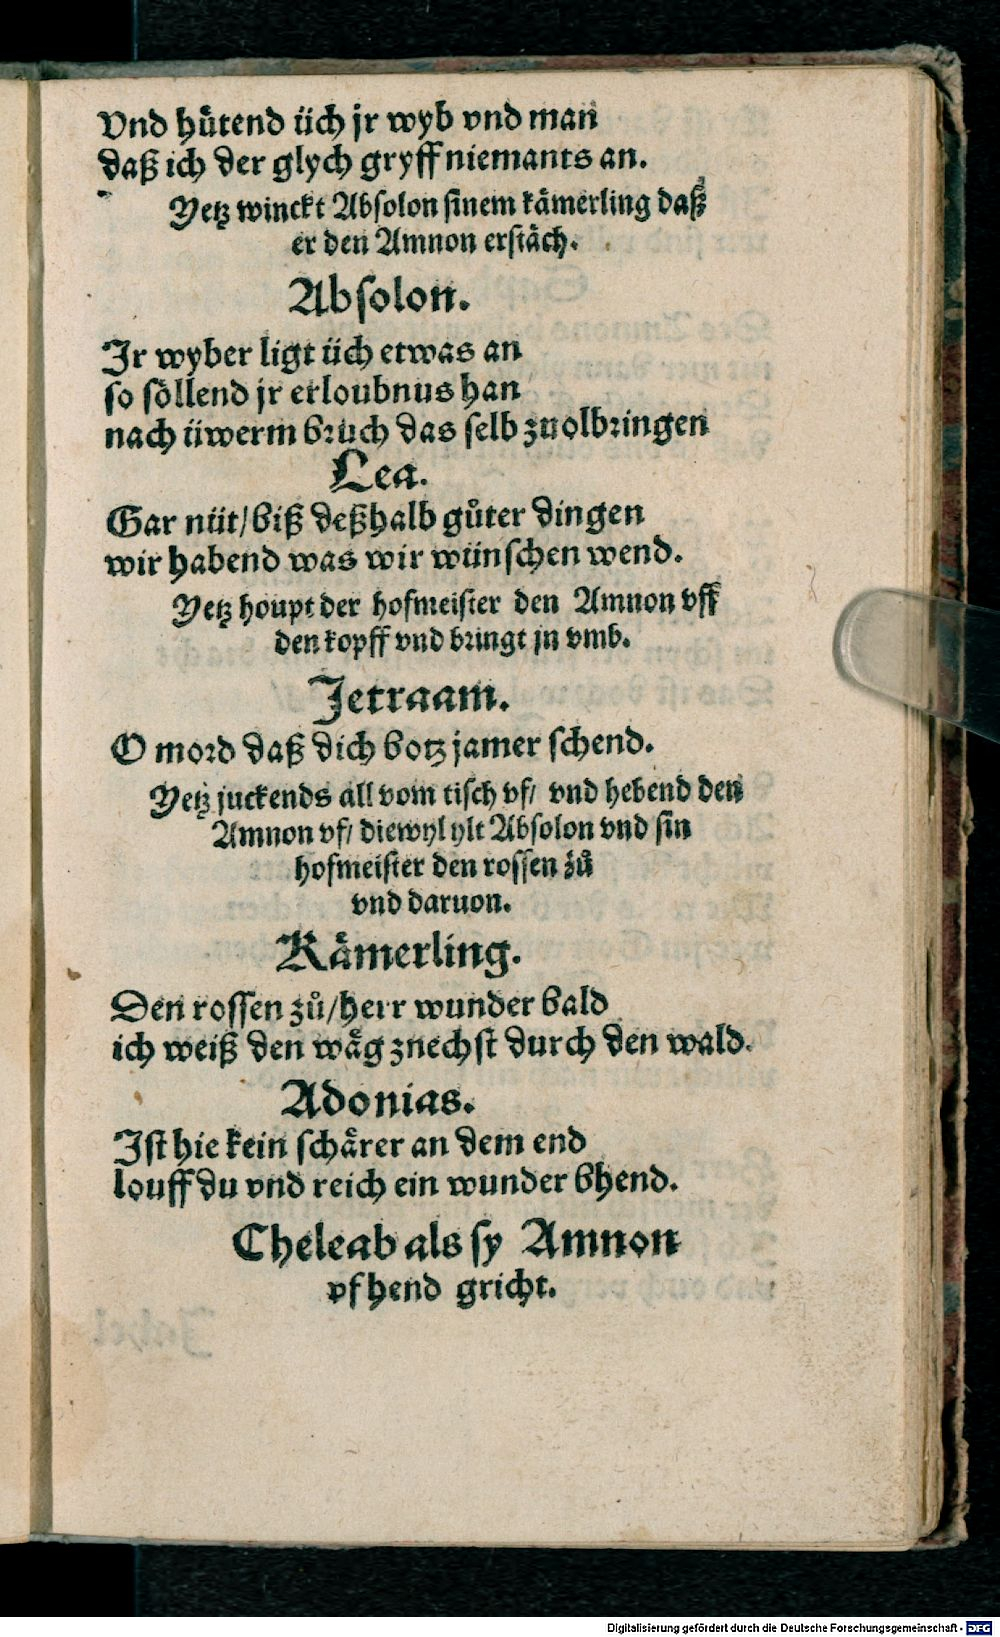 Vnd hůtend üch jr wyb vnd man
daß ich der glych gryff niemants an.
Yetz winckt Absolon sinem kämerling daß
er den Amnon erstäch.
Absolon.
Jr wyber ligt üch etwas an
so söllend jr erloubnus han
nach üwerm bruch das selb zuolbringen
Lea.
Gar nüt/ biß deßhalb gůter dingen
wir habend was wir wünschen wend.
Yetz houpt der hofmeister den Amnon vff
den kopff vnd bringt jn vmb.
Jetraam.
O mord daß dich botz jamer schend.
Yetz juckends all vom tisch vf/ vnd hebend den
Amnon vf/ diewyl ylt Absolon vnd sin
hofmeister den rossen zů
vnd daruon.
Kämerling.
Den rossen zů/ herr wunder bald
ich weiß den wäg znechst durch den wald.
Adonias.
Ist hie kein schärer an dem end
louff du vnd reich ein wunder bhend.
Cheleab als sy Amnon
vf hend gricht.
Digitalisierung gefördert durch die Deutsche Forschungsgemeinschaft - DFG